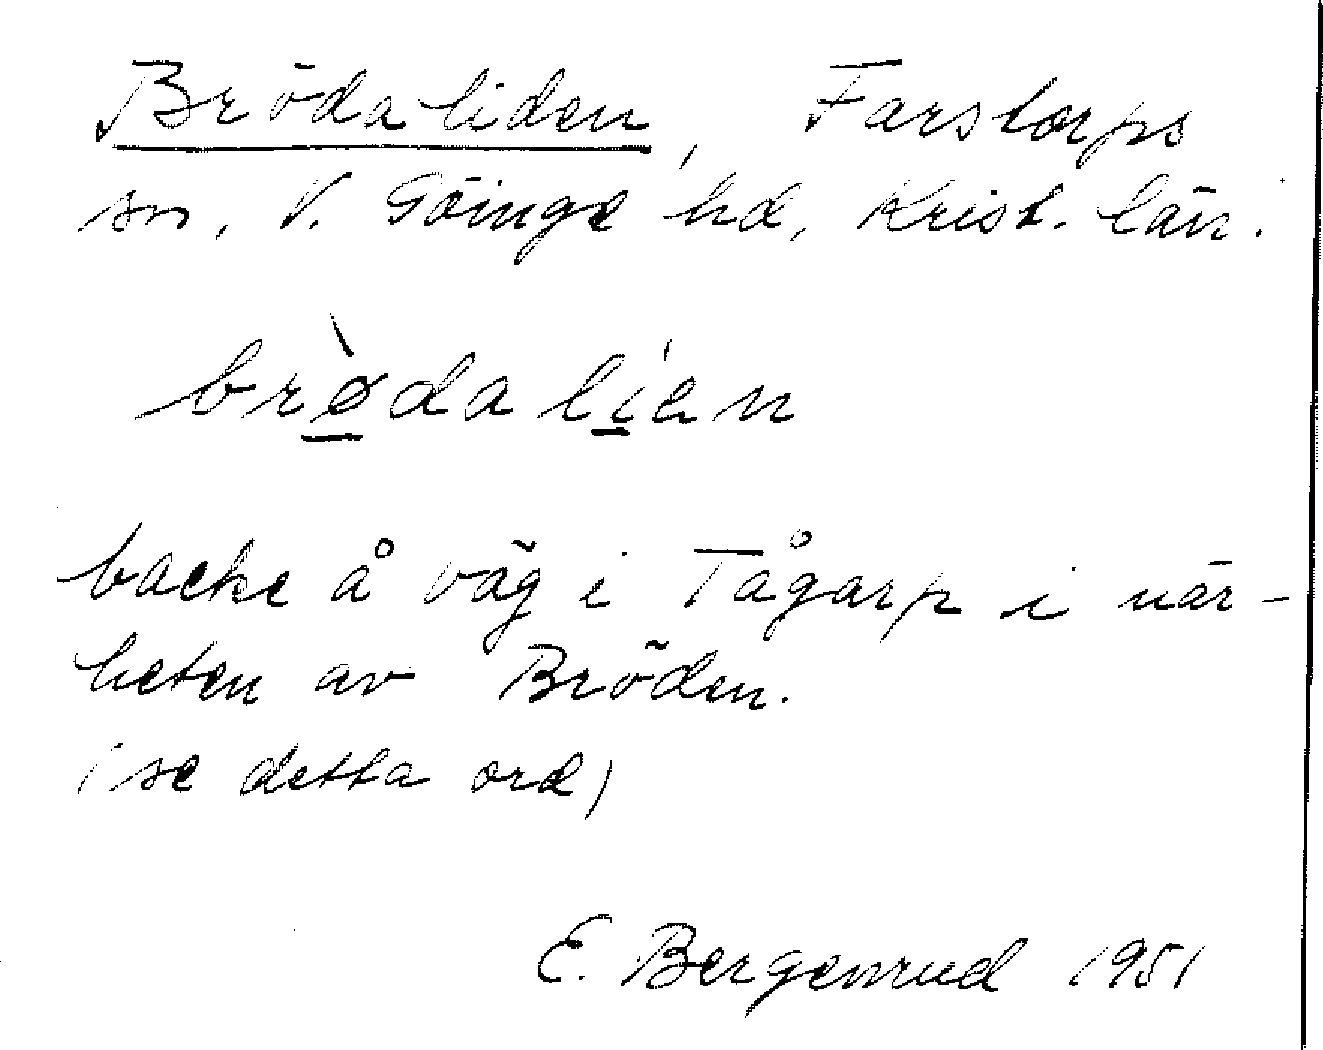 Brödaliden, Farstorps
sn, V. Göinge hd, Krist. län.
brø̀dalíen
backe å väg i Tågarp i när-
heten av Bröden.
(se detta ord)
E. Bergenrud 1951